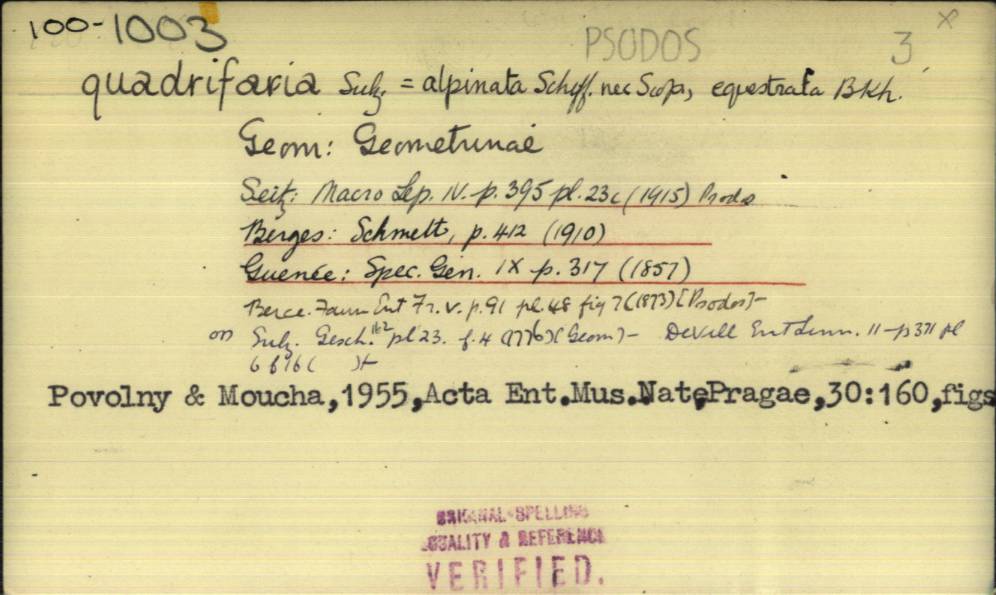 100-1003
PSODOS 3 x
quadrifaria Sulz. = alpinata Schiff. nec Scop, equestrata Bkh.
Geom: Geometrinae
Seitz: Macro Lep. IV. p. 395 pl. 23c (1915) Psodos
Berges: Schmett, p. 412 (1910)
Guenée: Spec. Gen. IX p. 317 (1857)
Berce. Faun Ent Fr. V. p. 91 pl. 48 fig 7 (1873) [Psodos]-
on Sulz. Gesch. pl 23. f. 4 (1776) (Geom)- DeVill Ent Linn. 11-p 371 pl
6 f 96 ( )+
Povolny & Moucha,1955,Acta Ent.Mus.Nat.Pragae,30:160,figs
ORIGINAL SPELLING
LOCALITY & REFERENCE
VERIFIED.